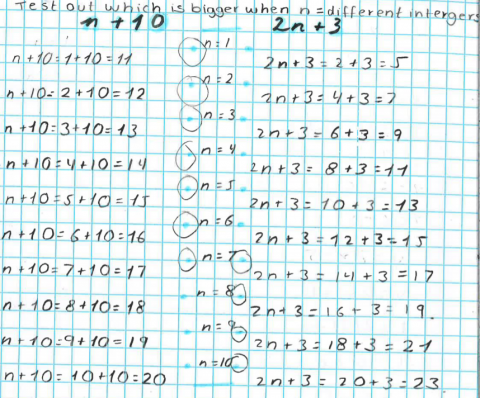 Test out which is bigger when n = different intergers
n + 10 2n + 3
n+10=1+10=11 n=1 2n+3=2+3=5
n+10=2+10=12 n=2 2n+3=4+3=7
n+10=3+10=13 n=3 2n+3=6+3=9
n+10=4+10=14 n=4 2n+3=8+3=11
n+10=5+10=15 n=5 2n+3=10+3=13
n+10=6+10=16 n=6 2n+3=12+3=15
n+10=7+10=17 n=7 2n+3=14+3=17
n+10=8+10=18 n=8 2n+3=16+3=19.
n+10=9+10=19 n=9 2n+3=18+3=21
n+10=10+10=20 n=10 2n+3=20+3=23